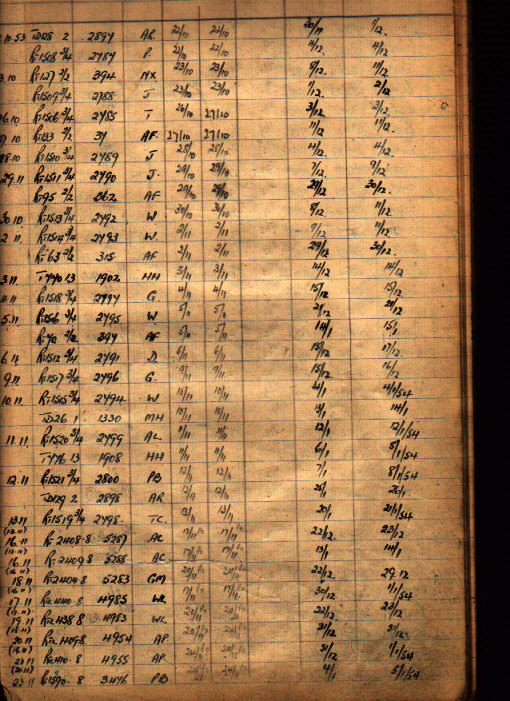 10.53 TD28 2 2897 AR 22/10 22/10 1/12.
R.1508 3/4 2787 P 22/10 22/10 4/12. 4/12
3.10 R.127 2/2 394 NX 23/10 23/10 9/12. 11/12
R.1509 3/4 2788 J 23/10 23/10 1/12. 2/12
26.10 R.1506 3/4 2785 T 26/10 27/10 3/12 3/12.
27.10 R.133 2/2 31 AF. 27/10 27/10 11/12.
28.10 R.1510 3/4 2789 J 28/10 28/10 4/12. 4/12.
29.11 R.1511 3/4 2790 J. 29/10 29/10 7/12. 9/12.
R.95 2/2 362 AF 29/10 29/10 29/12 30/12.
30.10 R.1513 3/4 2792 W 30/10 30/10 8/12. 11/12
2.11 R.1514 3/4 2793 W. 2/11 2/11 9/12 11/12.
R.63 2/2 315 AF 2/11 2/11 29/12 30/12.
3.11. T770 13 1902 HH 3/11 3/11 14/12 14/12
4.11 R.1518 3/4 2797 G. 4/11 4/11 15/12 15/12
5.11. R.1516 3/4 2795 W 5/11 5/11 21/12
R.70 2/2 397 AF 5/11 5/11 14/1 15/1
6.11 R.1512 3/4 2791 D. 6/11 6/11 15/12 17/12.
9.11 R.1517 3/4 2796 G. 9/11 9/11 15/12 16/12
10.11 R.1515 3/4 2794 W 10/11 10/11 4/1 4/1/54
TD26 1 1330 MH 10/11 10/11 13/1 14/1
11.11. R.1520 3/4 2799 AL 11/11 11/11 12/1 12/1/54
T776 13 1908 HH 11/11 11/11 6/1 8/1/54
12.11 R.1521 3/4 2800 PB 12/11 12/11 7/1 8/1/54
TD29 2 2898 AR 12/11 12/11 25/1 26/1
13.11 R.1519 3/4 2798. TC. 13/11 13/11 20/1 21/1/54
16.11 R.2408.8 5287 AC 17/11 17/11 22/12. 23/12
16.11 R.2409.8 5288 AC 17/11 17/11 13/1 14/1
18.11 R.2404.8 5283 GM 22/12. 29.12
17.11 4985 WL 30/12 1/1/54
19.11 4983 WL 22/12. 22/12
20.11 4954 AP 31/12
4955 AP 31/12 1/1/54
23.11 R.1590.8 3476 PB 4/1 5/1/54